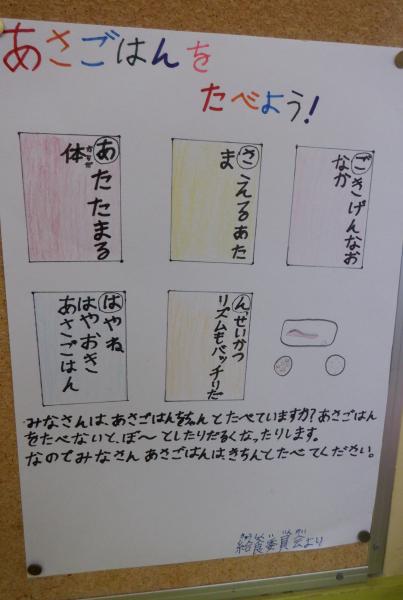 あさごはんを
たべよう!
あたたまる
体
からだ
さえるあた
ま
ごきげんなお
なか
はやね
はやおき
あさごはん
ん、せいかつ
リズムもバッチリだ
みなさんは、あさごはんをちゃんとたべていますか?あさごはん
をたべないと、ぼ〜としたりだるくなったりします。
なのでみなさん あさごはんは、きちんとたべてください。
きゅうしょくいいんかい
給食委員会より